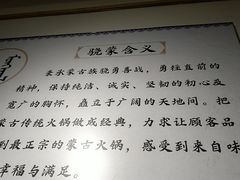 骁蒙含义
秉承蒙古族骁勇善战，勇往直前的
精神，保持纯洁、诚实、坚韧的初心及
宽广的胸怀，矗立于广阔的天地间。把
蒙古传统火锅做成经典，力求让顾客品
到最正宗的蒙古火锅，感受到来自味
幸福与满足。